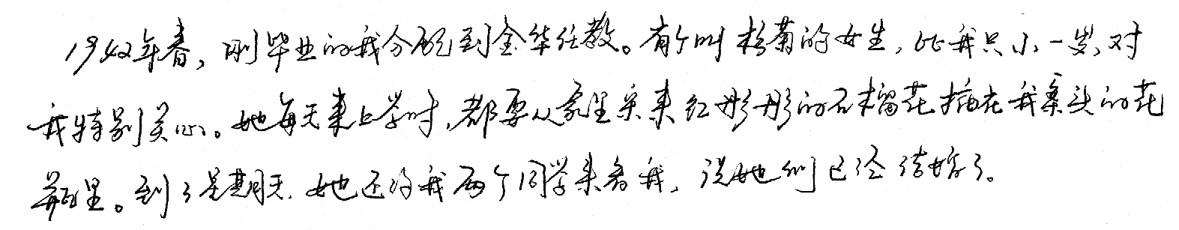 1942年春，刚毕业的我分配到金华任教。有个叫松菊的女生，比我只小一岁，对
我特别关心。她每天来上学时，都要从家里采来红彤彤的石榴花插在我桌头的花
瓶里。到了星期天，她还约我两个同学来看我，说她们已经结婚了。